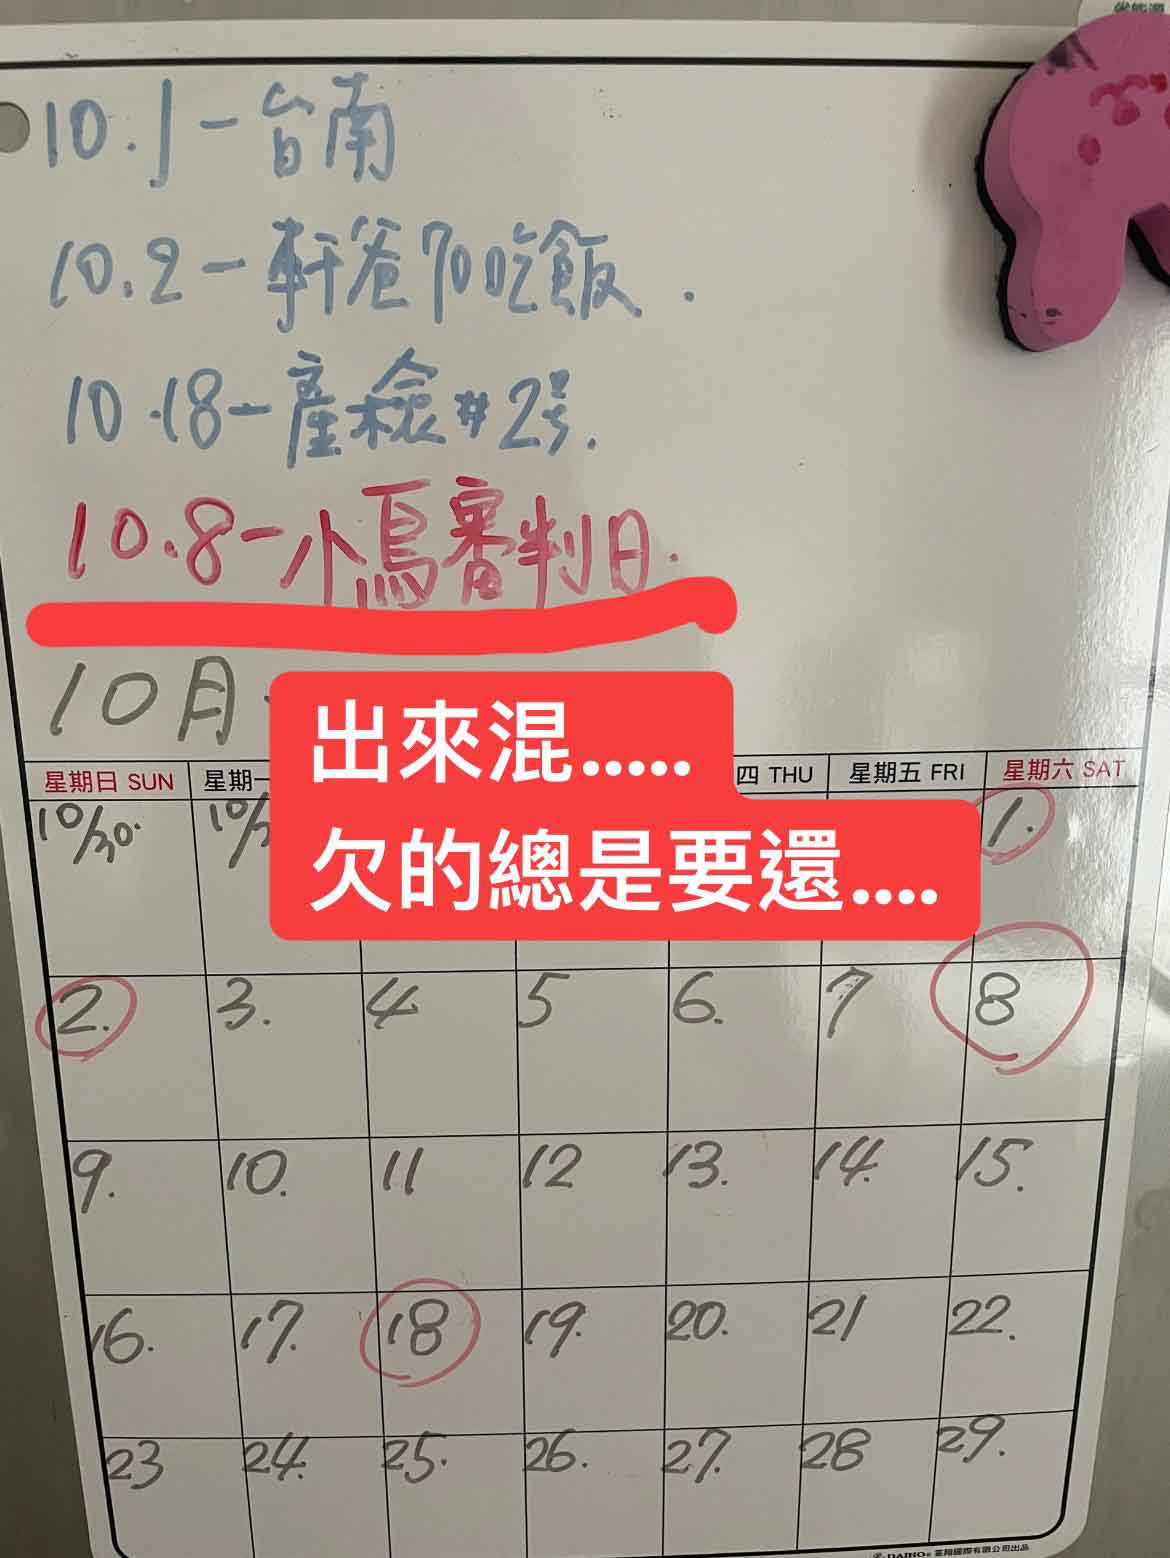 10.1-台南
10.2-軒爸70吃飯.
10.18-產檢#2号.
10.8-小鳥審判日.
10月.
出來混.....
欠的總是要還....
星期日 SUN 星期一 四 THU 星期五 FRI 星期六 SAT
10/30. 10/3 1.
2. 3. 4 5 6. 7 8
9. 10. 11 12 13. 14. 15.
16. 17. 18 19. 20. 21 22.
23 24. 25. 26. 27. 28 29.
DAIHO®